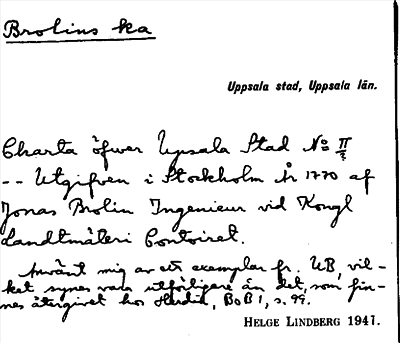 Brolins ka
Uppsala stad, Uppsala län.
Charta öfwer Upsala Stad No II
-- Utgifven i Stockholm År 1770 af
Jonas Brolin Ingenieur vid Kongl
Landtmäteri Contoiret.
Använt mig av ett exemplar fr. UB, vil-
ket synes vara utförligare än det, som fin-
nes återgivet hos Herdin, BoB 1, s. 99.
HELGE LINDBERG 1941.